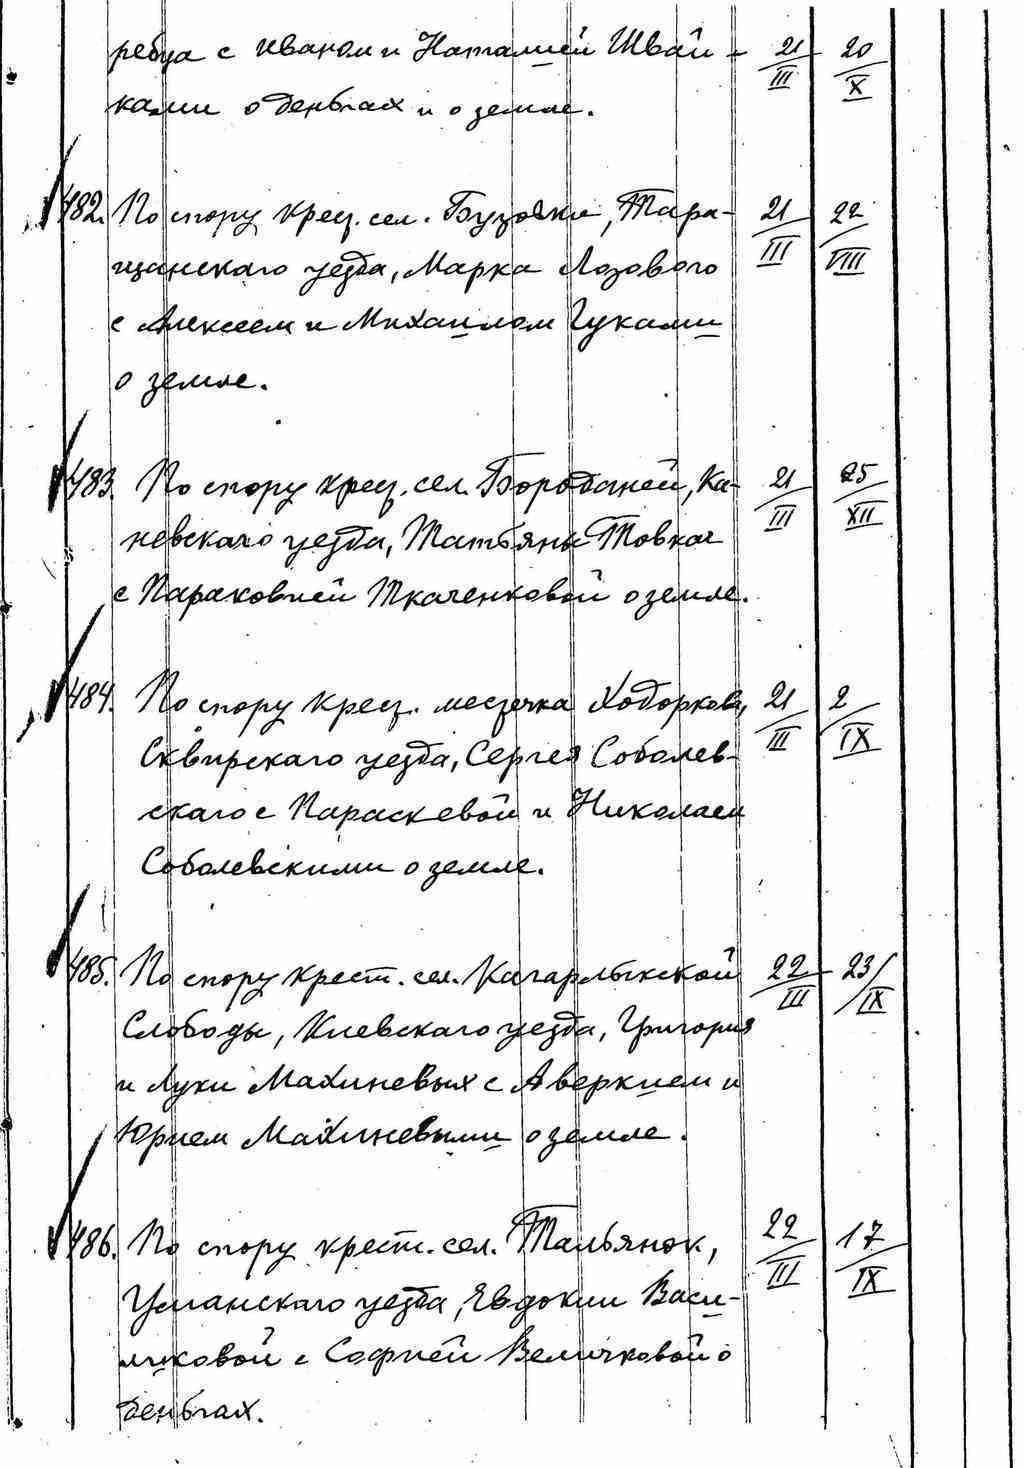 ребца с Иваном и Наталией Швай- 21/III 20/X
ками о деньгах и о земле.
482. По спору крест. сел. Бузовки, Тара- 21/III 22/VIII
щанскаго уезда, Марка Лозового
с Алексеем и Михаилом Гуками
о земле.
483. По спору крест. сел. Бородатей, Ка- 21/III 25/XII
невскаго уезда, Татьяны Товкач
с Параковией Ткаченковой о земле.
484. По спору крест. местечка Ходоркова, 21/III 2/IX
Сквирскаго уезда, Сергея Соболев-
скаго с Параскевой и Николаем
Соболевскими о земле.
485. По спору крест. сел. Кагарлыкской 22/III 23/IX
Слободы, Киевскаго уезда, Григория
и Луки Махиневых с Аверкием и
Юрием Махиневыми о земле.
486. По спору крест. сел. Тальянок, 22/III 17/IX
Уманскаго уезда, Евдокии Васи-
ликовой с Софией Величковой о
деньгах.